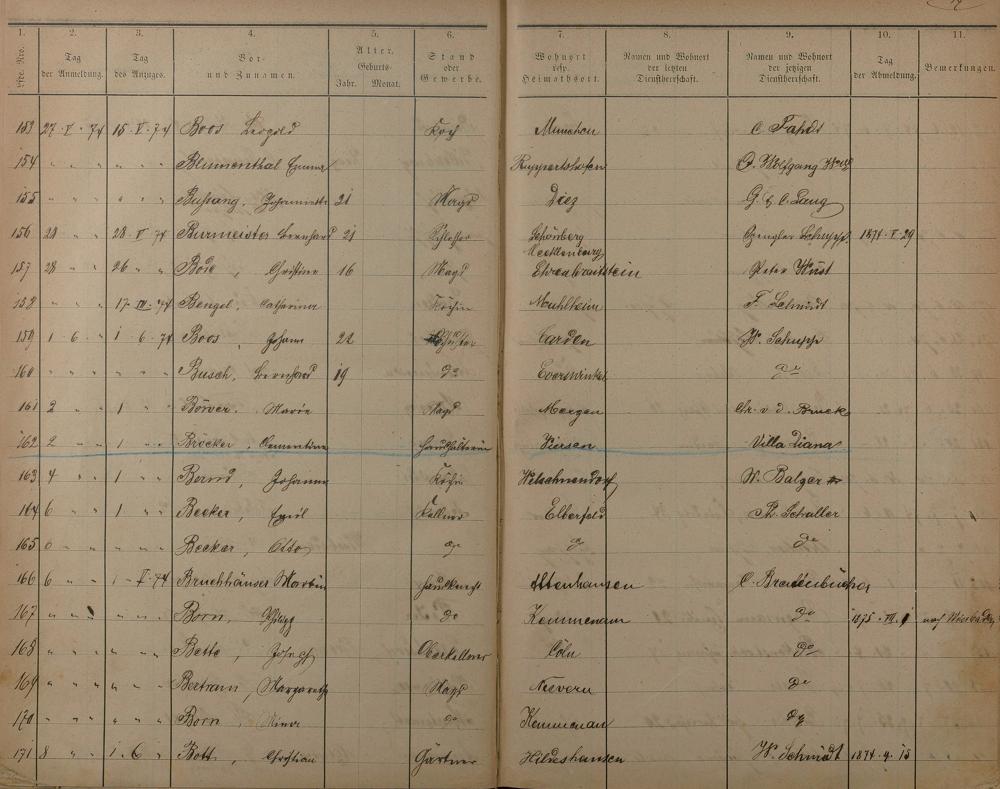 1. 2. 3. 4. 5. 6. 7. 8. 9. 10. 11.
Lfde. Nro. Tag der Anmeldung. Tag des Anzuges. Vor- und Zunamen. Alter. Geburts- Jahr. Monat. Stand oder Gewerbe. Wohnort resp. Heimathsort. Namen und Wohnort der letzten Dienstherrschaft. Namen und Wohnort der jetzigen Dienstherrschaft. Tag der Abmeldung. Bemerkungen.
153 27 · V · 74 15 · V · 74 Boos, Leopold Koch München C. Fahdt
154 " " " " " " Blumenthal Emma Ruppertshofen O. Wolfgang
155 " " " " " " Bussang, Johannette 21 Magd Diez G. & C. Lang
156 28 " " 28 · V 74 Burmeister Bernhard 21 Schlosser Schönberg Mecklenburg Schupp 1874 · V · 29
157 28 " " 26 " " Bode, Christine 16 Magd Ehrenbreitstein Peter Wüst
158 " " " 17 · III · 74 Bengel, Catharina Köchin Mühlheim F. Schmidt
159 1 · 6 · " 1 · 6 · 74 Boos, Johann 22 Carden W. Schupp
160 " " " " " " Busch, Bernhard 19 do Everswinkel do
161 2 " " 1 " " Börver, Marie Magd Mergen Chr. v. d. Bruck
162 2 " " 1 " " Bröcker, Clementine Haushälterin Viersen Villa Diana
163 4 " " 1 " " Bernd, Johanna Köchin Welschneudorf W. Balzar
164 6 " " 1 " " Becker, Emil Kellner Elberfeld Ph. Schaller
165 6 " " " " " Becker, Otto do do do
166 6 " " 1 · V · 74 Bruchhäuser Martin Hausknecht Attenhausen C. Bredenbücher
167 " " " " " " Born, Philipp do Kemmenau do 1875 · VII · 1 nach Wiesbaden
168 " " " " " " Bette, Joseph Oberkellner Cöln do
169 " " " " " " Bertram, Margarethe Magd Nievern do
170 " " " " " " Born, Mina do Kemmenau do
171 8 " " 1 · 6 · " Bott, Christian Gärtner Hildeshausen W. Schmidt 1874 · 9 · 15